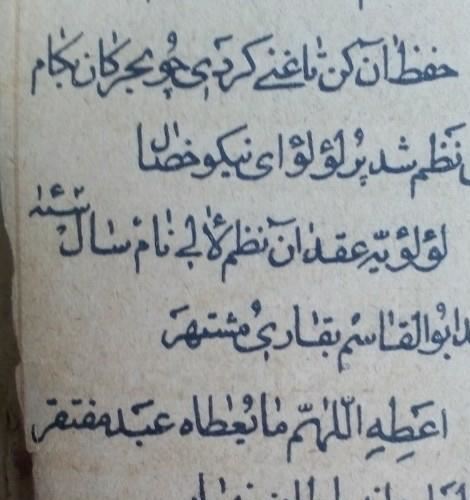 حفظ آن کن تا غنی کردی چو بحر کان بکام
نظم شد پر لؤلؤ ای نیکو خصال
لؤلؤیه عقد آن نظم لآلی نام سال
ابوالقاسم بقاری مشتهر
اعطه اللهم ما یعطاه عبد مفتقر